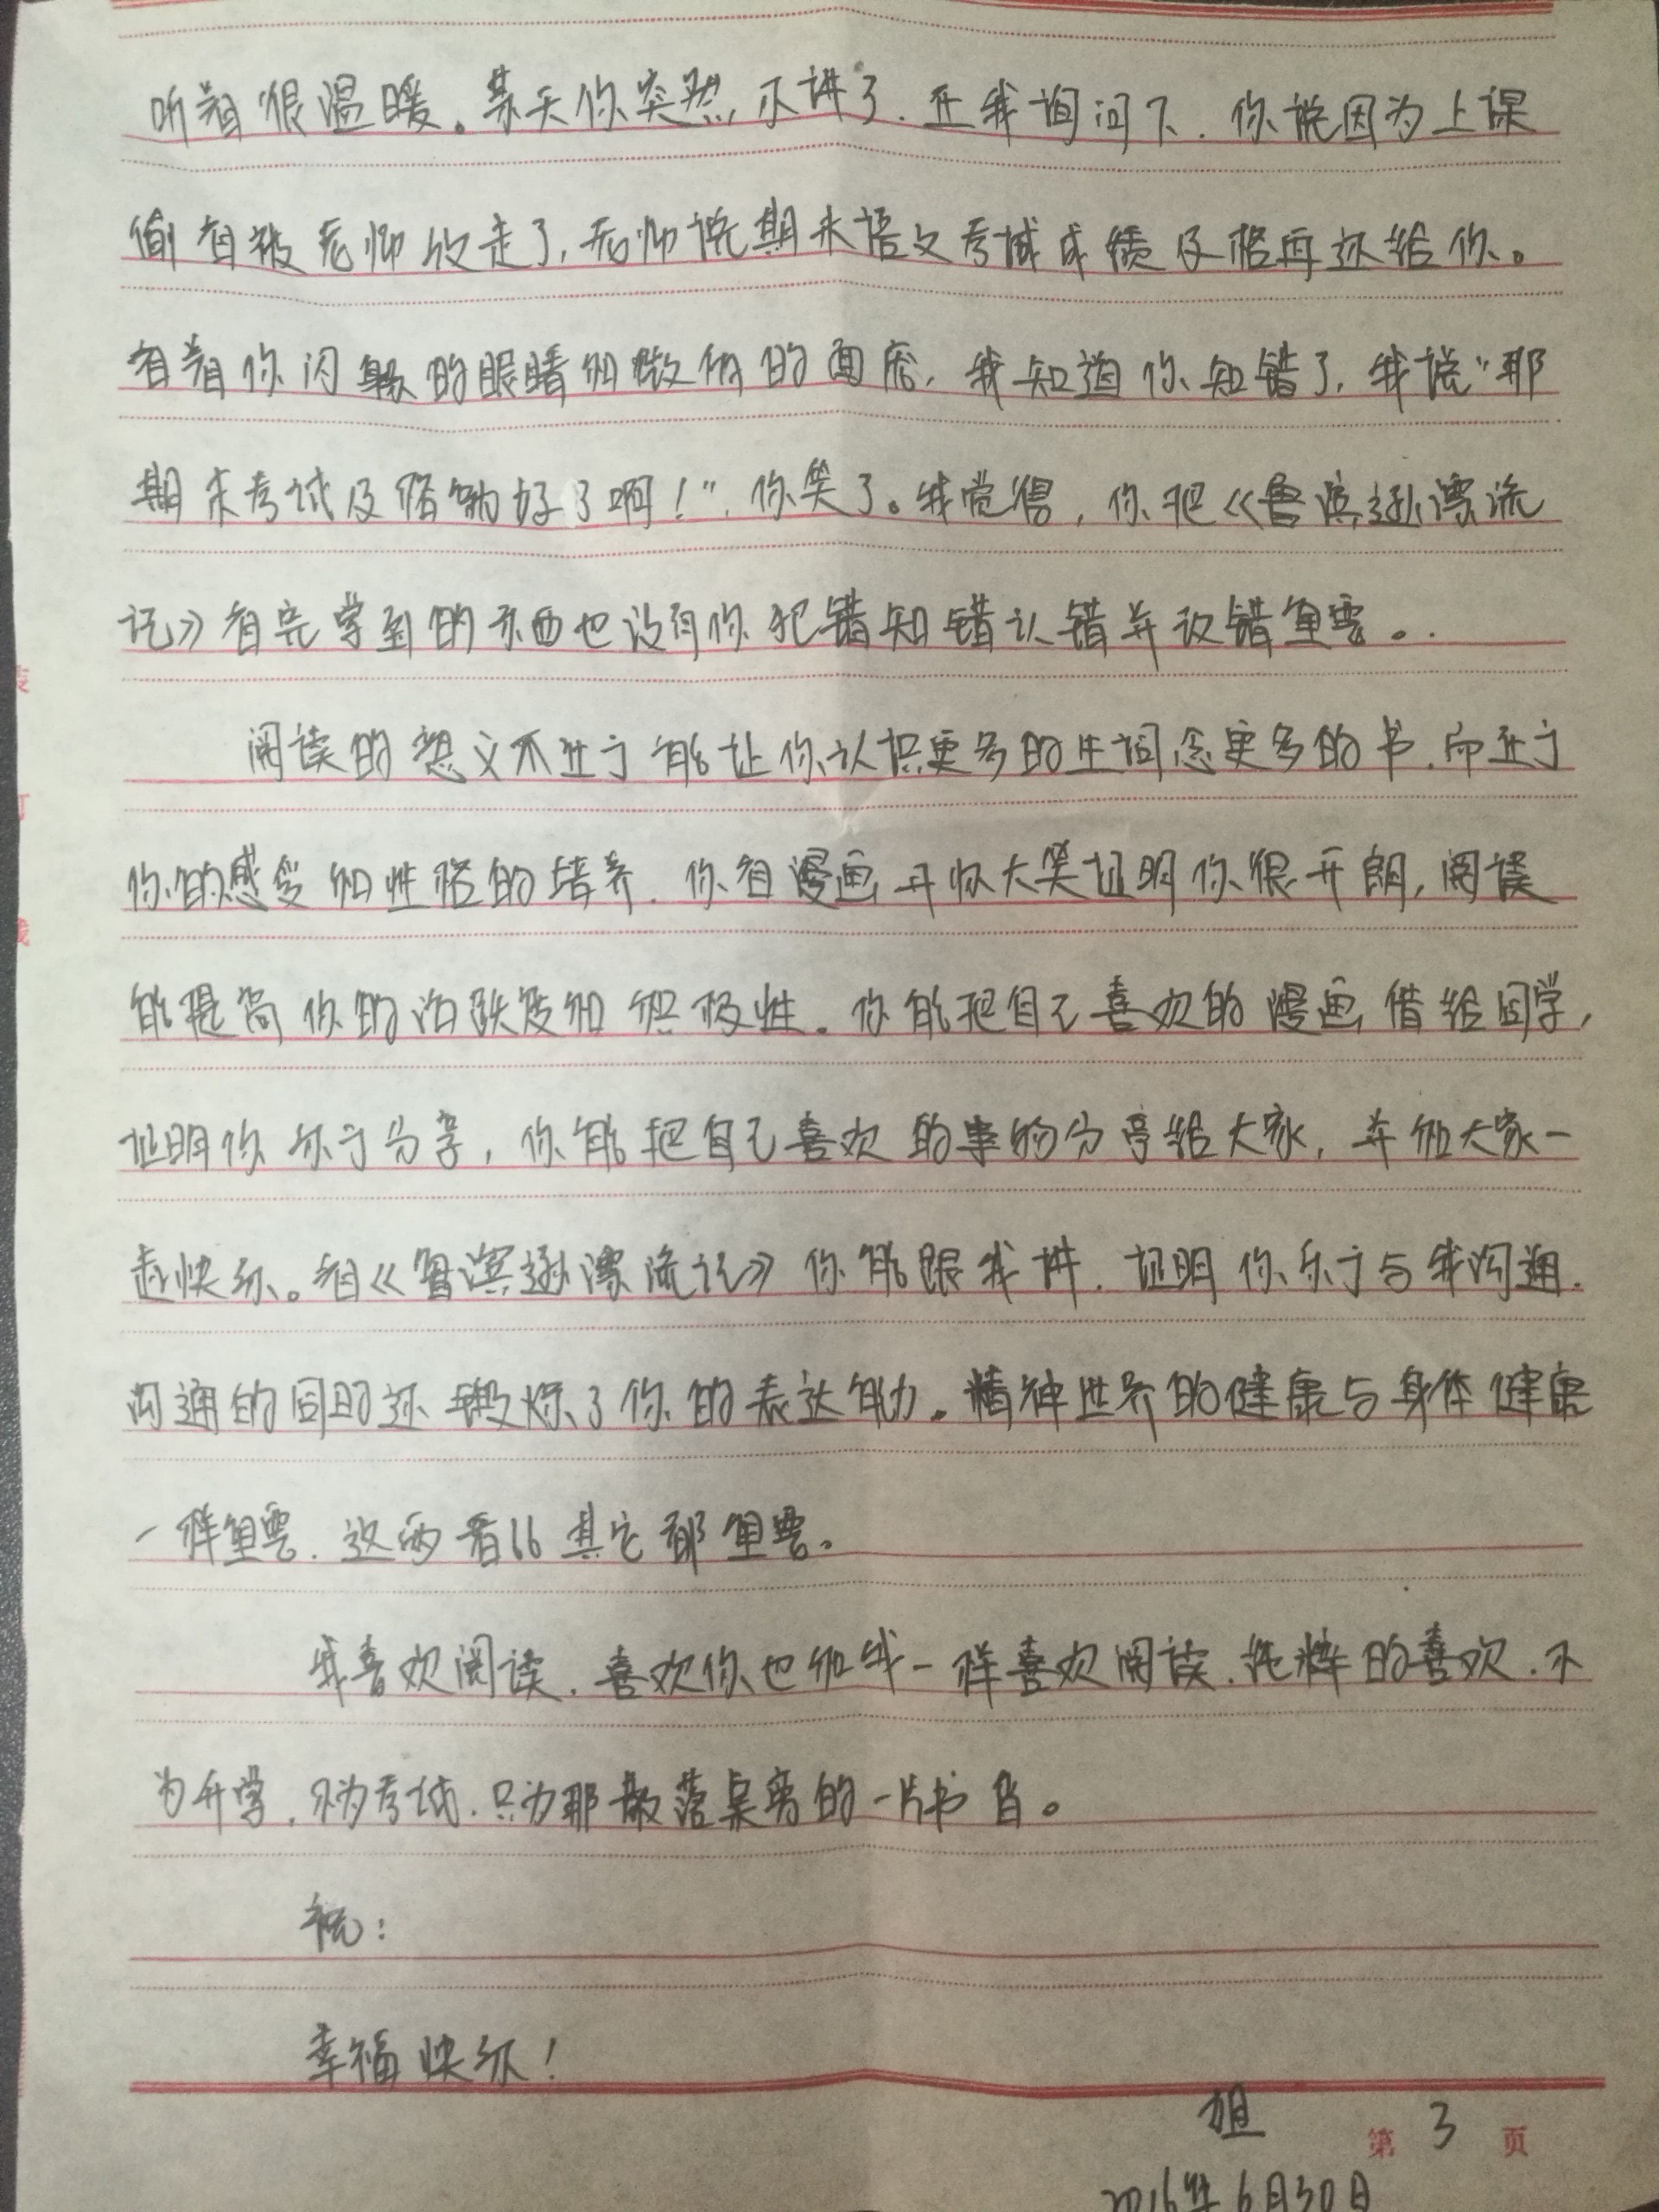 听着很温暖。某天你突然不讲了.在我询问下.你说因为上课
偷看被老师收走了,老师说期末语文考试成绩及格再还给你。
看着你闪躲的眼睛和微俯的面庞,我知道你知错了,我说“那
期末考试及格就好了啊!”,你笑了。我觉得,你把《鲁滨逊漂流
记》看完学到的东西也没有你犯错知错认错并改错重要。
阅读的意义不在于能让你认识更多的生词念更多的书.而在于
你的感受和性格的培养.你看漫画开怀大笑证明你很开朗,阅读
能提高你的活跃度和积极性.你能把自己喜欢的漫画借给同学,
证明你乐于分享,你能把自己喜欢的事物分享给大家,并和大家一
起快乐。看《鲁滨逊漂流记》你能跟我讲.证明你乐于与我沟通.
沟通的同时还锻炼了你的表达能力.精神世界的健康与身体健康
一样重要.这两者比其它都重要.
我喜欢阅读.喜欢你也和我一样喜欢阅读.纯粹的喜欢.不
为升学.不为考试.只为那散落桌旁的一片书香。
祝:
幸福快乐!
姐
第 3 页
2016年6月30日